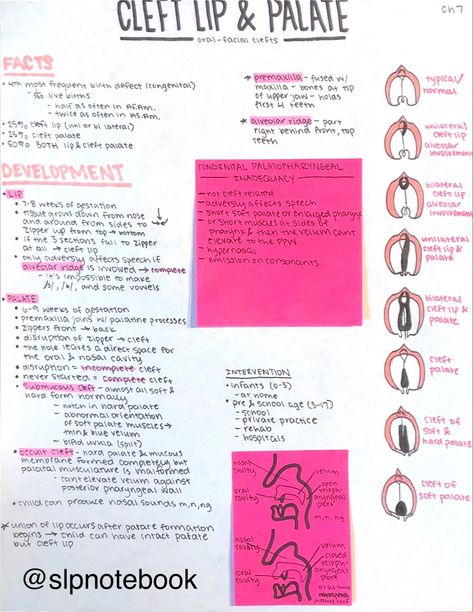 CLEFT LIP & PALATE
oral-facial clefts
Ch 7
FACTS
• 4th most frequent birth defect (congenital)
live births
- half as often in Af.Am.
- twice as often in As.Am.
• 25% cleft lip (uni or bilateral)
• 25% cleft palate
• 50% BOTH lip & cleft palate
* premaxilla - fused w/
maxilla - bones at tip
of upper jaw - holds
first 4 teeth
* alveolar ridge - part
right behind front, top
teeth
DEVELOPMENT
• LIP
• 7-8 weeks of gestation
• tissue grows down from nose
and around from sides to
zipper up from top → bottom
• if the 3 sections fail to zipper
at all → cleft lip
• only adversely affects speech if
alveolar ridge is involved → complete
- it's impossible to make
and some vowels
• PALATE
• 6-9 weeks of gestation
• premaxilla joins w/ palatine processes
• zippers front → back
• disruption of zipper → cleft
• the hole leaves a direct space for
the oral & nasal cavity
• disruption = incomplete cleft
• never started = complete cleft
• submucous cleft - almost all soft &
hard form normally
- notch in hard palate
- abnormal orientation
of soft palate muscles →
thin & blue velum
- bifid uvula (split)
• occult cleft - hard palate & mucous
membrane formed completely but
palatal musculature is malformed
- cant elevate velum against
posterior pharyngeal wall
• child can produce nasal sounds m, n, ng
* union of lip occurs after palate formation
begins → child can have intact palate
but cleft lip
CONGENITAL PALATOPHARYNGEAL
INADEQUACY
- not cleft related
- adversely affects speech
- short soft palate or enlarged pharynx
or short muscles or sides of
pharynx & then the velum can't
elevate to the PPW
- hypernasal
- emission on consonants
INTERVENTION
• infants (0-3)
- at home
• pre & school age (3-17)
- school
- private practice
- rehab
- hospitals
nasal
cavity
oral
cavity
velum
open
veloph-
aryngeal
port
m, n, ng
nasal
cavity
oral
cavity
velum
closed
veloph-
aryngeal
port
typical/
normal
unilateral
cleft lip &
alveolar
involvement
bilateral
cleft lip &
alveolar
involvement
unilateral
cleft lip &
palate
bilateral
cleft lip &
palate
cleft
palate
cleft of
soft & hard
palate
cleft of
soft palate
@slpnotebook